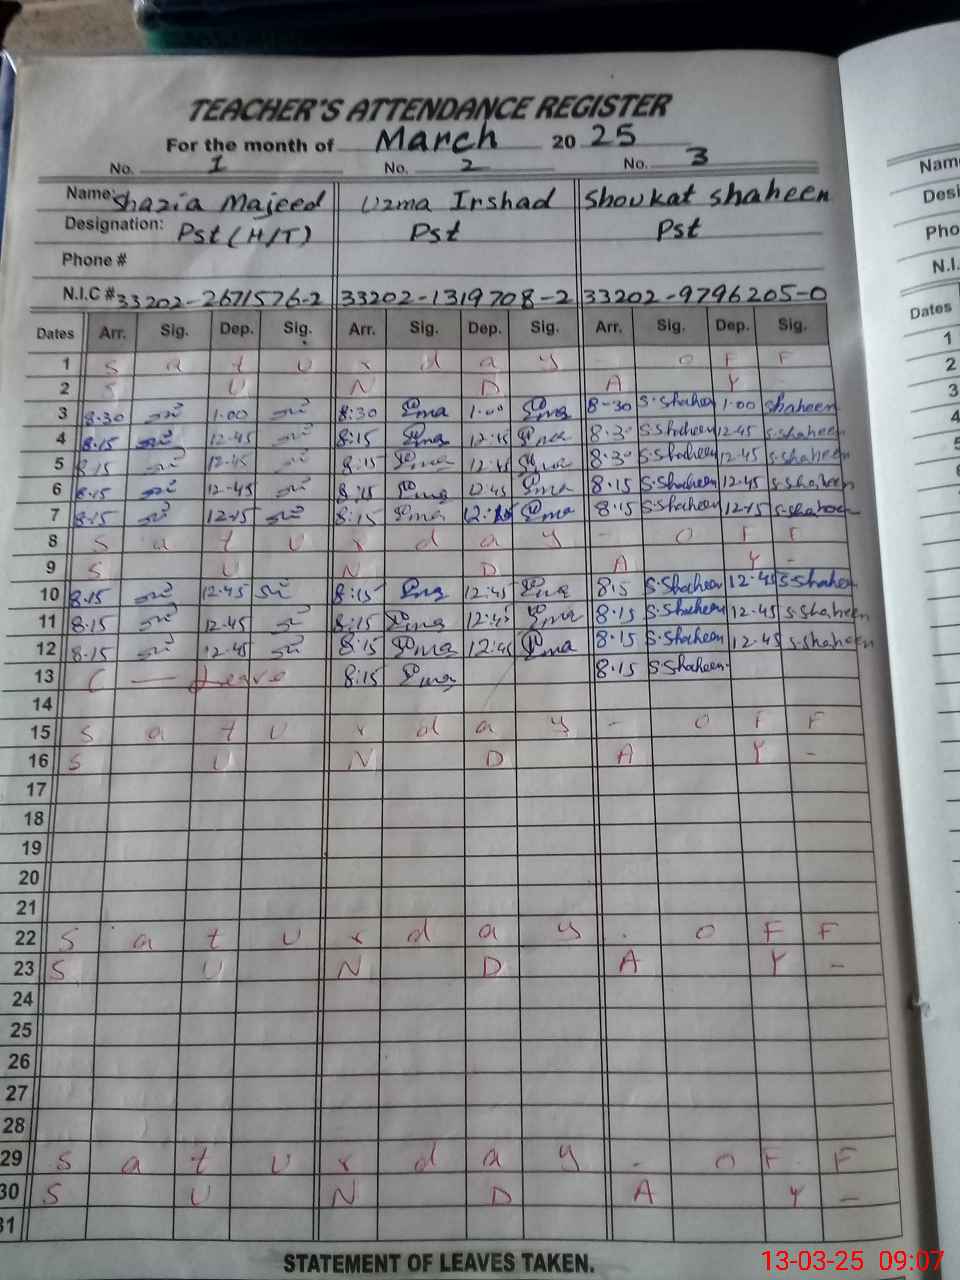 TEACHER'S ATTENDANCE REGISTER
For the month of March 2025
No. 1 No. 2 No. 3
Name: Shazia Majeed Uzma Irshad Shoukat Shaheen
Designation: Pst (H/T) Pst Pst
Phone #
N.I.C # 33202-2671576-2 33202-1319708-2 33202-9796205-0
Dates Arr. Sig. Dep. Sig. Arr. Sig. Dep. Sig. Arr. Sig. Dep. Sig.
1 S a t u r d a y - O F F
2 S U N D A Y -
3 8:30 1.00 8:30 1.00 8-30 S.Shaheen 1.00 Shaheen
4 8.15 12.45 8:15 12:45 8.30 S.Shaheen 12.45 S.Shaheen
5 8.15 12.45 8:15 12:45 8.30 S.Shaheen 12.45 S.Shaheen
6 8.15 12.45 8:15 12:45 8.15 S.Shaheen 12.45 S.Shaheen
7 8.15 12.15 8:15 8.15 S.Shaheen 12.15 S.Shaheen
8 S a t u r d a y - O F F
9 S U N D A Y -
10 8.15 12.45 8:15 12:45 8.15 S.Shaheen 12.45 S.Shaheen
11 8.15 12.45 8:15 12:45 8.15 S.Shaheen 12.45 S.Shaheen
12 8.15 12.45 8:15 12:45 8.15 S.Shaheen 12.45 S.Shaheen
13 C — Leave 8:15 8.15 S.Shaheen
14
15 S a t u r d a y - O F F
16 S U N D A Y -
17
18
19
20
21
22 S a t u r d a y . O F F
23 S U N D A Y -
24
25
26
27
28
29 S a t u r d a y - O F F
30 S U N D A Y -
31
STATEMENT OF LEAVES TAKEN.
13-03-25 09:07
Name
Desi
Pho
N.I.
Dates
1
2
3
4
5